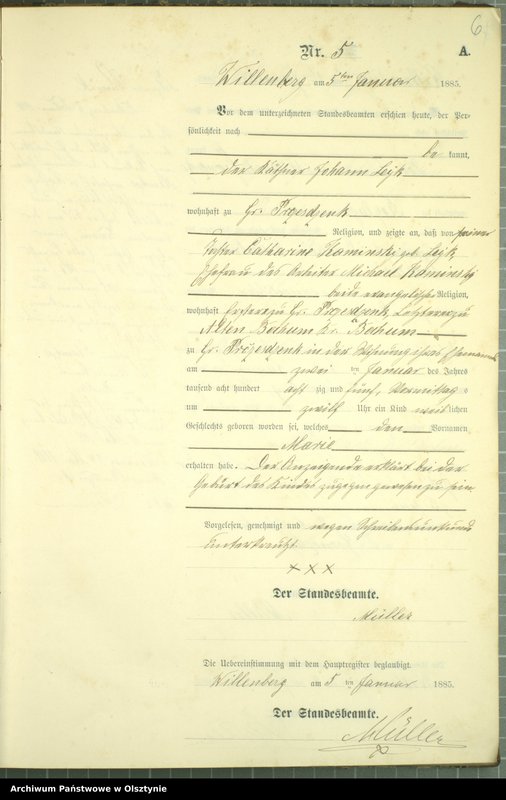 6
Nr. 5
A.
Willenberg am 5ten Januar 1885.
Vor dem unterzeichneten Standesbeamten erschien heute, der Per-
sönlichkeit nach
be kannt,
der Käthner Johann Lejk
wohnhaft zu Gr. Przesdzenk
Religion, und zeigte an, daß von seiner
Tochter Catharine Kaminski geb. Lejk
Ehefrau des Arbeiter Michael Kaminski
beide evangelischer Religion,
wohnhaft erstere zu Gr. Przesdzenk letzterer zu
Alten Bochum Kr. Bochum
zu Gr. Przesdzenk in der Wohnung ihres Ehemannes
am zwei ten Januar des Jahres
tausend acht hundert acht zig und fünf, Vormittag s
um zwölf Uhr ein Kind weib lichen
Geschlechts geboren worden sei, welches den Vornamen
Marie
erhalten habe. Der Anzeigende erklärt bei der
Geburt des Kindes zugegen gewesen zu sein
Vorgelesen, genehmigt und wegen Schreibensunkunde
unterkreuzt.
× × ×
Der Standesbeamte.
Müller
Die Uebereinstimmung mit dem Hauptregister beglaubigt.
Willenberg am 5 ten Januar 1885.
Der Standesbeamte.
Müller
Archiwum Państwowe w Olsztynie